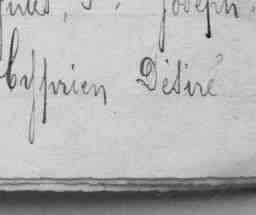 Joseph
Cyprien Désiré